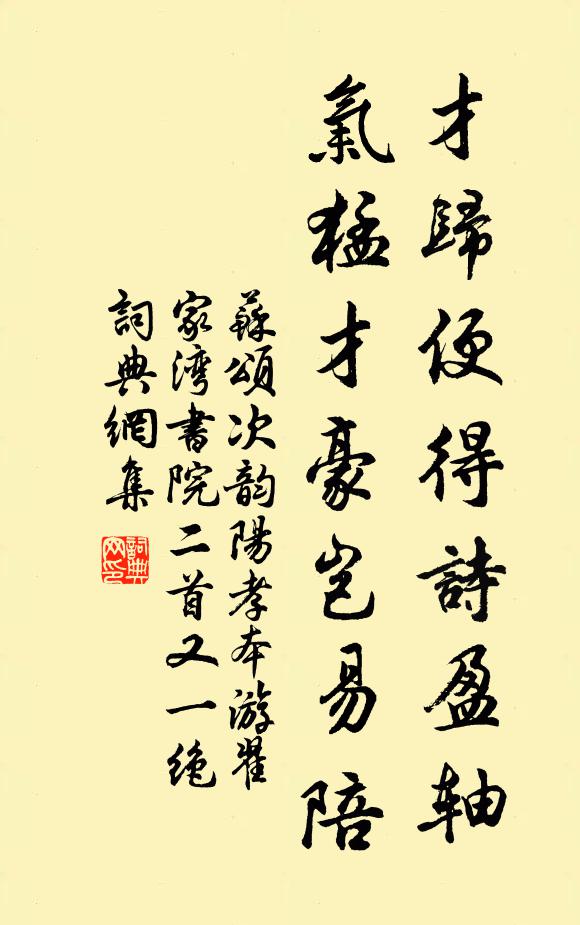 才歸便得詩盈軸
氣猛才豪豈易陪
蘇頌次韵陽孝本游瞿
家灣書院二首又一絶
詞典網集
詞典网印